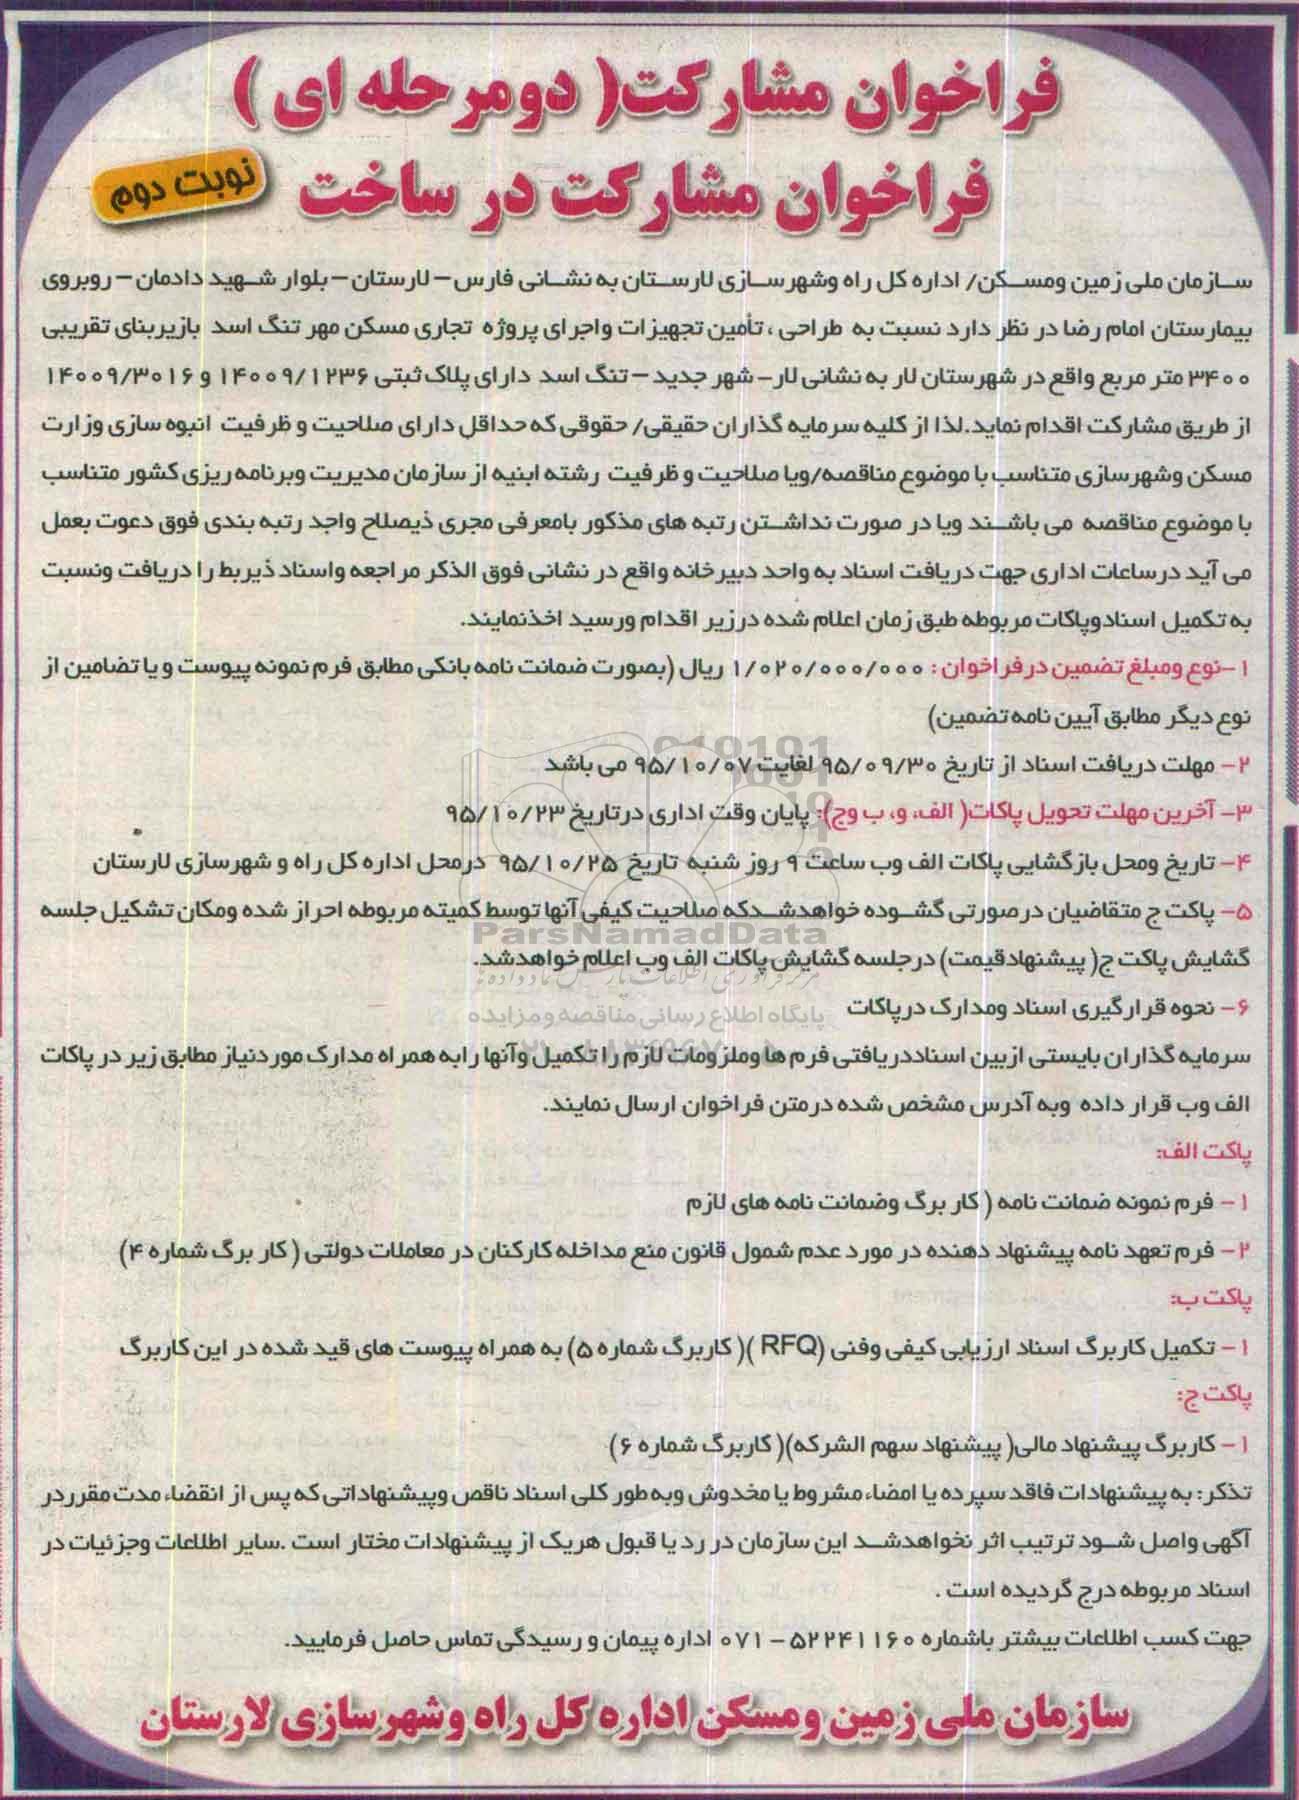 فراخوان مشارکت( دومرحله ای )
فراخوان مشارکت در ساخت
نوبت دوم
سازمان ملی زمین ومسکن/ اداره کل راه وشهرسازی لارستان به نشانی فارس– لارستان – بلوار شهید دادمان – روبروی
بیمارستان امام رضا در نظر دارد نسبت به طراحی ، تأمین تجهیزات واجرای پروژه تجاری مسکن مهر تنگ اسد بازیربنای تقریبی
۳۴۰۰ متر مربع واقع در شهرستان لار به نشانی لار– شهر جدید – تنگ اسد دارای پلاک ثبتی ۱۴۰۰۹/۱۲۳۶ و ۱۴۰۰۹/۳۰۱۶
از طریق مشارکت اقدام نماید.لذا از کلیه سرمایه گذاران حقیقی/ حقوقی که حداقل دارای صلاحیت و ظرفیت انبوه سازی وزارت
مسکن وشهرسازی متناسب با موضوع مناقصه/ویا صلاحیت و ظرفیت رشته ابنیه از سازمان مدیریت وبرنامه ریزی کشور متناسب
با موضوع مناقصه می باشند ویا در صورت نداشتن رتبه های مذکور بامعرفی مجری ذیصلاح واجد رتبه بندی فوق دعوت بعمل
می آید درساعات اداری جهت دریافت اسناد به واحد دبیرخانه واقع در نشانی فوق الذکر مراجعه واسناد ذیربط را دریافت ونسبت
به تکمیل اسنادوپاکات مربوطه طبق زمان اعلام شده درزیر اقدام ورسید اخذنمایند.
۱–نوع ومبلغ تضمین درفراخوان : ۱/۰۲۰/۰۰۰/۰۰۰ ریال (بصورت ضمانت نامه بانکی مطابق فرم نمونه پیوست و یا تضامین از
نوع دیگر مطابق آیین نامه تضمین)
۲– مهلت دریافت اسناد از تاریخ ۹۵/۰۹/۳۰ لغایت ۹۵/۱۰/۰۷ می باشد
۳– آخرین مهلت تحویل پاکات( الف، و، ب وج): پایان وقت اداری درتاریخ ۹۵/۱۰/۲۳
۴– تاریخ ومحل بازگشایی پاکات الف وب ساعت ۹ روز شنبه تاریخ ۹۵/۱۰/۲۵ درمحل اداره کل راه و شهرسازی لارستان
۵– پاکت ج متقاضیان درصورتی گشوده خواهدشدکه صلاحیت کیفی آنها توسط کمیته مربوطه احراز شده ومکان تشکیل جلسه
گشایش پاکت ج( پیشنهادقیمت) درجلسه گشایش پاکات الف وب اعلام خواهدشد.
ParsNamadData
مرکز فرآوری اطلاعات پارس نماد داده ها
پایگاه اطلاع رسانی مناقصه ومزایده
۶– نحوه قرارگیری اسناد ومدارک درپاکات
سرمایه گذاران بایستی ازبین اسناددریافتی فرم ها وملزومات لازم را تکمیل وآنها رابه همراه مدارک موردنیاز مطابق زیر در پاکات
الف وب قرار داده وبه آدرس مشخص شده درمتن فراخوان ارسال نمایند.
پاکت الف:
۱– فرم نمونه ضمانت نامه ( کار برگ وضمانت نامه های لازم
۲– فرم تعهد نامه پیشنهاد دهنده در مورد عدم شمول قانون منع مداخله کارکنان در معاملات دولتی ( کار برگ شماره ۴)
پاکت ب:
۱– تکمیل کاربرگ اسناد ارزیابی کیفی وفنی (RFQ )( کاربرگ شماره ۵) به همراه پیوست های قید شده در این کاربرگ
پاکت ج:
۱– کاربرگ پیشنهاد مالی( پیشنهاد سهم الشرکه)( کاربرگ شماره ۶)
تذکر: به پیشنهادات فاقد سپرده یا امضاء مشروط یا مخدوش وبه طور کلی اسناد ناقص وپیشنهاداتی که پس از انقضاء مدت مقرردر
آگهی واصل شود ترتیب اثر نخواهدشد این سازمان در رد یا قبول هریک از پیشنهادات مختار است .سایر اطلاعات وجزئیات در
اسناد مربوطه درج گردیده است .
جهت کسب اطلاعات بیشتر باشماره ۵۲۲۴۱۱۶۰ – ۰۷۱ اداره پیمان و رسیدگی تماس حاصل فرمایید.
سازمان ملی زمین ومسکن اداره کل راه وشهرسازی لارستان